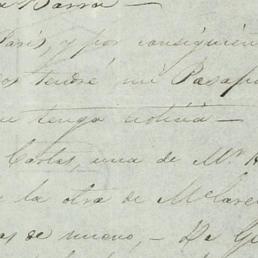 Barra —
Paris, y por consiguien
os tendré mi Pasapo
tenga noticia —
Cartas, una de Mr H
la otra de McLare
as de nuevo, — De G